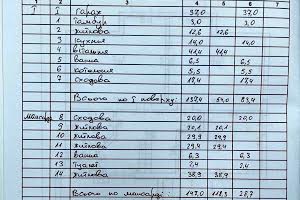 1 2 3 4 5 6 7
I I Гараж 37,0 37,0
1 Тамбур 3,0 3,0
2 Житлова 12,6 12,6
3 Кухня 14,0 14,0
4 Вітальня 41,4 41,4
5 Ванна 6,5 6,5
6 Котельня 5,5 5,5
7 Сходова 17,4 17,4
Всього по I поверху: 137,4 54,0 83,4
Мансарда 8 Сходова 20,0 20,0
9 Житлова 20,1 20,1
10 Житлова 29,9 29,9
11 Житлова 29,4 29,4
12 Ванна 6,3 6,3
13 Туалет 2,4 2,4
14 Житлова 38,9 38,9
Всього по мансарді: 147,0 118,3 28,7